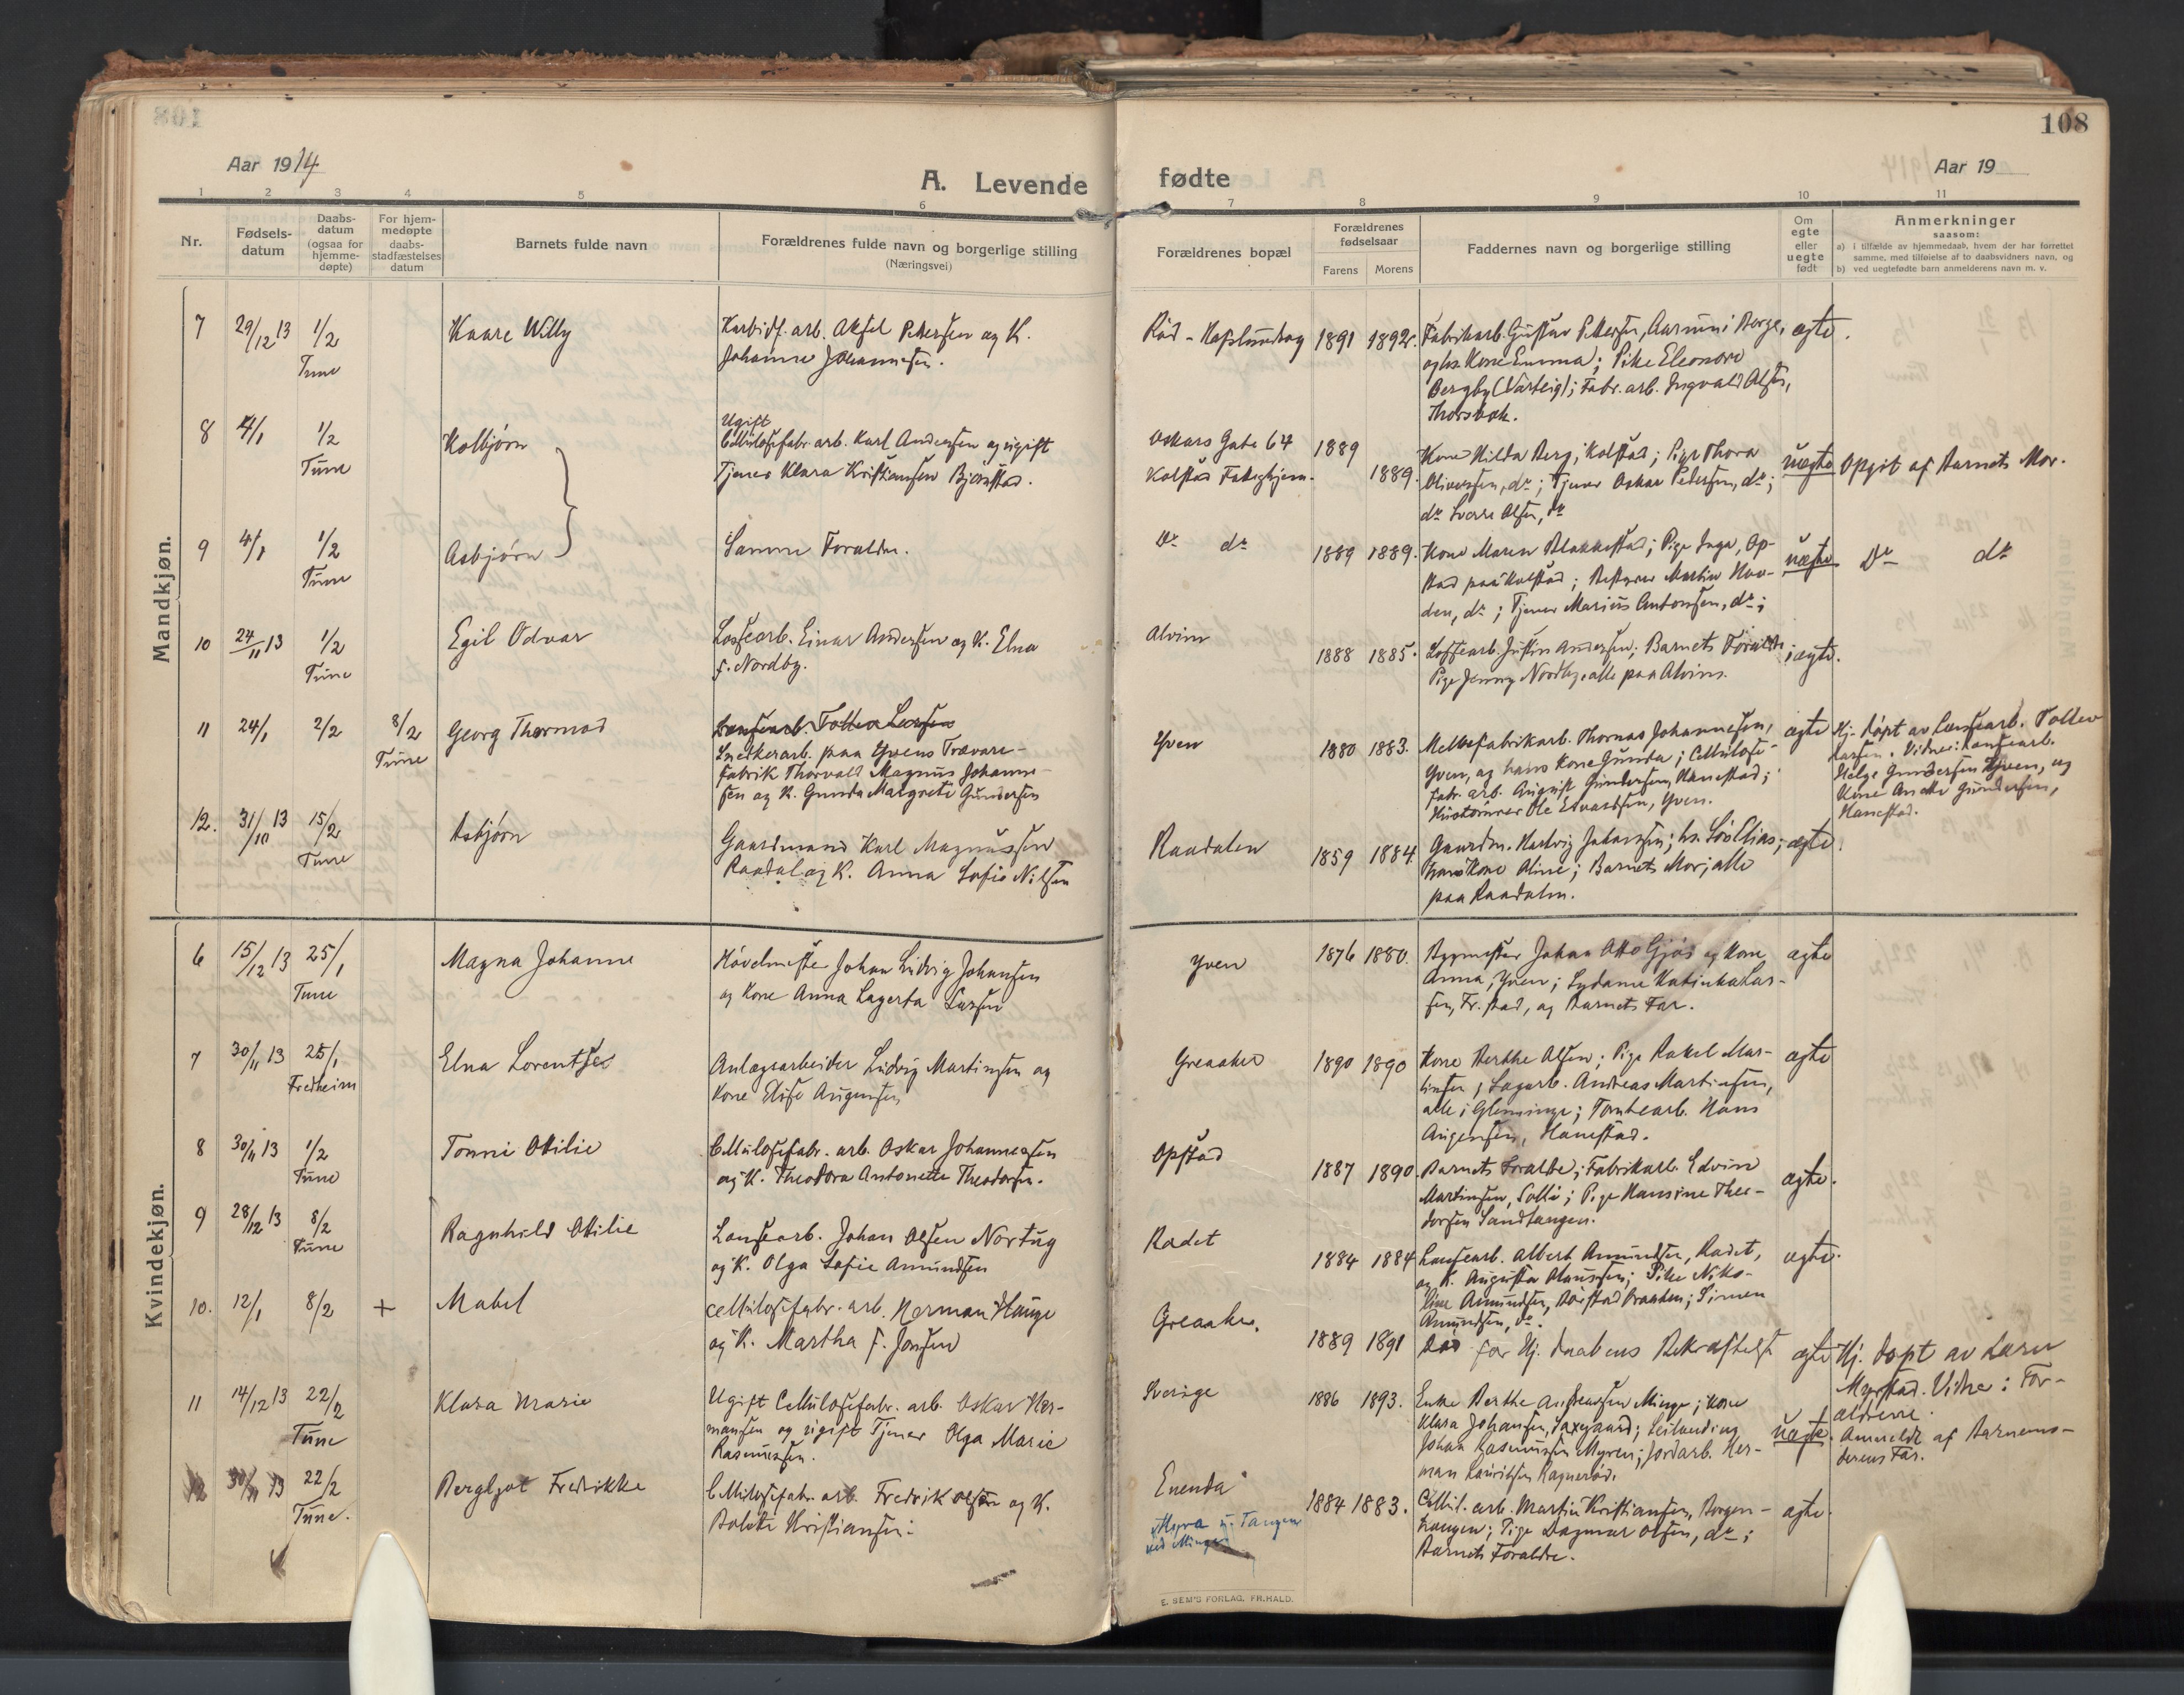 108
Aar 1914
A. Levende fødte
Aar 19
1 2 3 4 5 6 7 8 9 10 11
Nr.
Fødsels-
datum
Daabs-
datum
(ogsaa for
hjemme-
døpte)
For hjem-
medøpte
daabs-
stadfæstelses
datum
Barnets fulde navn
Forældrenes fulde navn og borgerlige stilling
(Næringsvei)
Forældrenes bopæl
Forældrenes
fødselsaar
Farens Morens
Faddernes navn og borgerlige stilling
Om
egte
eller
uegte
født
Anmerkninger
saasom:
a) i tilfælde av hjemmedaab, hvem der har forrettet
samme, med tilføielse af to daabsvidners navn, og
b) ved uegtefødte barn anmelderens navn m. v.
Mandkjøn.
7 29/12 13 1/2 Tune
Kaare Willy
Karbidf. arb. Aksel Pettersen og K.
Johanne Johannesen.
Råd - Hafslundsog 1891 1892.
Fabrikarb. Gustav Pettersen, Aarum i Borge,
og hs. Kone Emma; Pike Eleonore
Bergby (Varteig); Fabr. arb. Ingvald Olsen,
Thorsbæk.
ægte.
8 4/1 1/2 Tune
Kolbjørn
Ugift
Cellulosefabr. arb. Karl Andersen og ugift
Tjener Klara Kristiansen Bjørnstad.
Oskars Gate 64
Kalstad Fattighjem.
1889 1889.
Kone Hilda Berg, Kolstad; Pige Thora
Oliversen, do; Tjener Oskar Pedersen, do;
do Sverre Olsen, do
uægte
Opgit af Barnets Mor.
9 4/1 1/2 Tune
Asbjørn
Samme Forældre.
Do do
1889 1889.
Kone Maren Blakkestad; Pige Inga, Op-
stad paa Kolstad; Bestyrer Martin Hov-
den, do; Tjener Marius Antonsen, do;
uægte
Do do
10 24/11 13 1/2 Tune
Egil Odvar
Lossearb. Einar Andersen og K. Elna
f. Nordby.
Alvim
1888 1885.
Lossearb. Justin Andersen; Barnets Forældre;
Pige Jenny Nordby, alle paa Alvim.
ægte.
11 24/1 2/2 8/2 Tune
Georg Thormod
Lænsearb. Tollev Larsen
Snedkerarb. paa Yvens Trævare-
fabrik Thorvald Magnus Johanne-
sen og K. Gunda Margrete Gundersen
Yven
1880 1883.
Melkefabrikarb. Thomas Johannesen,
Yven, og hans Kone Gunda; Cellulose-
fabr. arb. August Gundersen, Hannestad;
Hustømrer Ole Edvardsen, Yven.
ægte
Hj. døpt av Lænsearb. Tollev
Larsen. Vidner: Lænsearb.
Helge Gundersen Yven, og
Kone Anette Gundersen,
Hannestad.
12. 31/10 13 15/2 Tune
Asbjørn
Gaardmand Karl Magnussen
Raadal og K. Anna Sofie Nilsen
Raadalen
1859 1884.
Gaardm. Hartvig Johansen; hs. Søn Elias;
hans Kone Oline; Barnets Mor; alle
paa Raadalen.
ægte.
Kvindekjøn.
6 15/12 13 25/1 Tune
Magna Johanne
Høvelmester Johan Ludvig Johansen
og Kone Anna Lagerta Larsen
Yven
1876 1880.
Bygmester Johan Otto Gjøs og Kone
Anna, Yven; Sydame Katinka Lar-
sen, Fr. stad, og Barnets Far.
ægte
7 30/11 13 25/1 Fredheim
Elna Lorentse
Anlægsarbeider Ludvig Martinsen og
Kone Elise Augensen
Greaaker
1890 1890
Kone Berthe Olsen; Pige Rakel Mar-
tinsen; Sagarb. Andreas Martinsen,
alle i Glemminge; Tomtearb. Hans
Augensen, Hannestad.
ægte
8 30/11 13 1/2 Tune
Tonni Otilie
Cellulosefabr. arb. Oskar Johannessen
og K. Theodora Antonette Theodorsen.
Opstad
1887 1890.
Barnets Forældre; Fabrikarb. Edvin
Martinsen, Solli; Pige Hansine Theo-
dorsen Sandtangen.
ægte.
9 28/12 13 8/2 Tune
Ragnhild Otilie
Lænsearb. Johan Olsen Nortug
og K. Olga Sofie Amundsen
Rædet
1884 1884
Lænsearb. Albert Amundsen, Rædet,
og K. Augusta Olaussen; Pike Niko-
line Amundsen, Bøstad Braaten; Simen
Amundsen, do.
ægte.
10. 12/1 8/2 +
Mabel
Cellulosefabr. arb. Herman Hauge
og K. Martha f. Jonsen
Greaaker.
1889 1891
Død før Hj. daabens Bekræftelse
ægte
Hj. døpt av Lærer
Myrstad. Vidner: For-
ældrene.
11 14/12 13 22/2 Tune
Klara Marie
Ugift Cellulosefabr. arb. Oskar Her-
mansen og ugift Tjener Olga Marie
Rasmussen.
Sverige
1886 1893.
Enke Berthe Andreassen Minge; Kone
Klara Johansen, Saxegaard; Leilending
Johan Rasmussen Myren; Jordarb. Her-
man Lauritsen Ragnerød.
uægte.
Anmeldt af Barnemo-
derens Far.
12 30/11 13 22/2 Tune.
Bergljot Fredrikke
Cellulosefabr. arb. Fredrik Olsen og K.
Bolette Kristiansen.
Enenda
Myra u. Tangen
ved Minge
1884 1883.
Cellul. arb. Martin Kristiansen, Borgen-
haugen; Pige Dagmar Olsen, do;
Barnets Forældre.
ægte.
E. SEM'S FORLAG, FR.HALD.